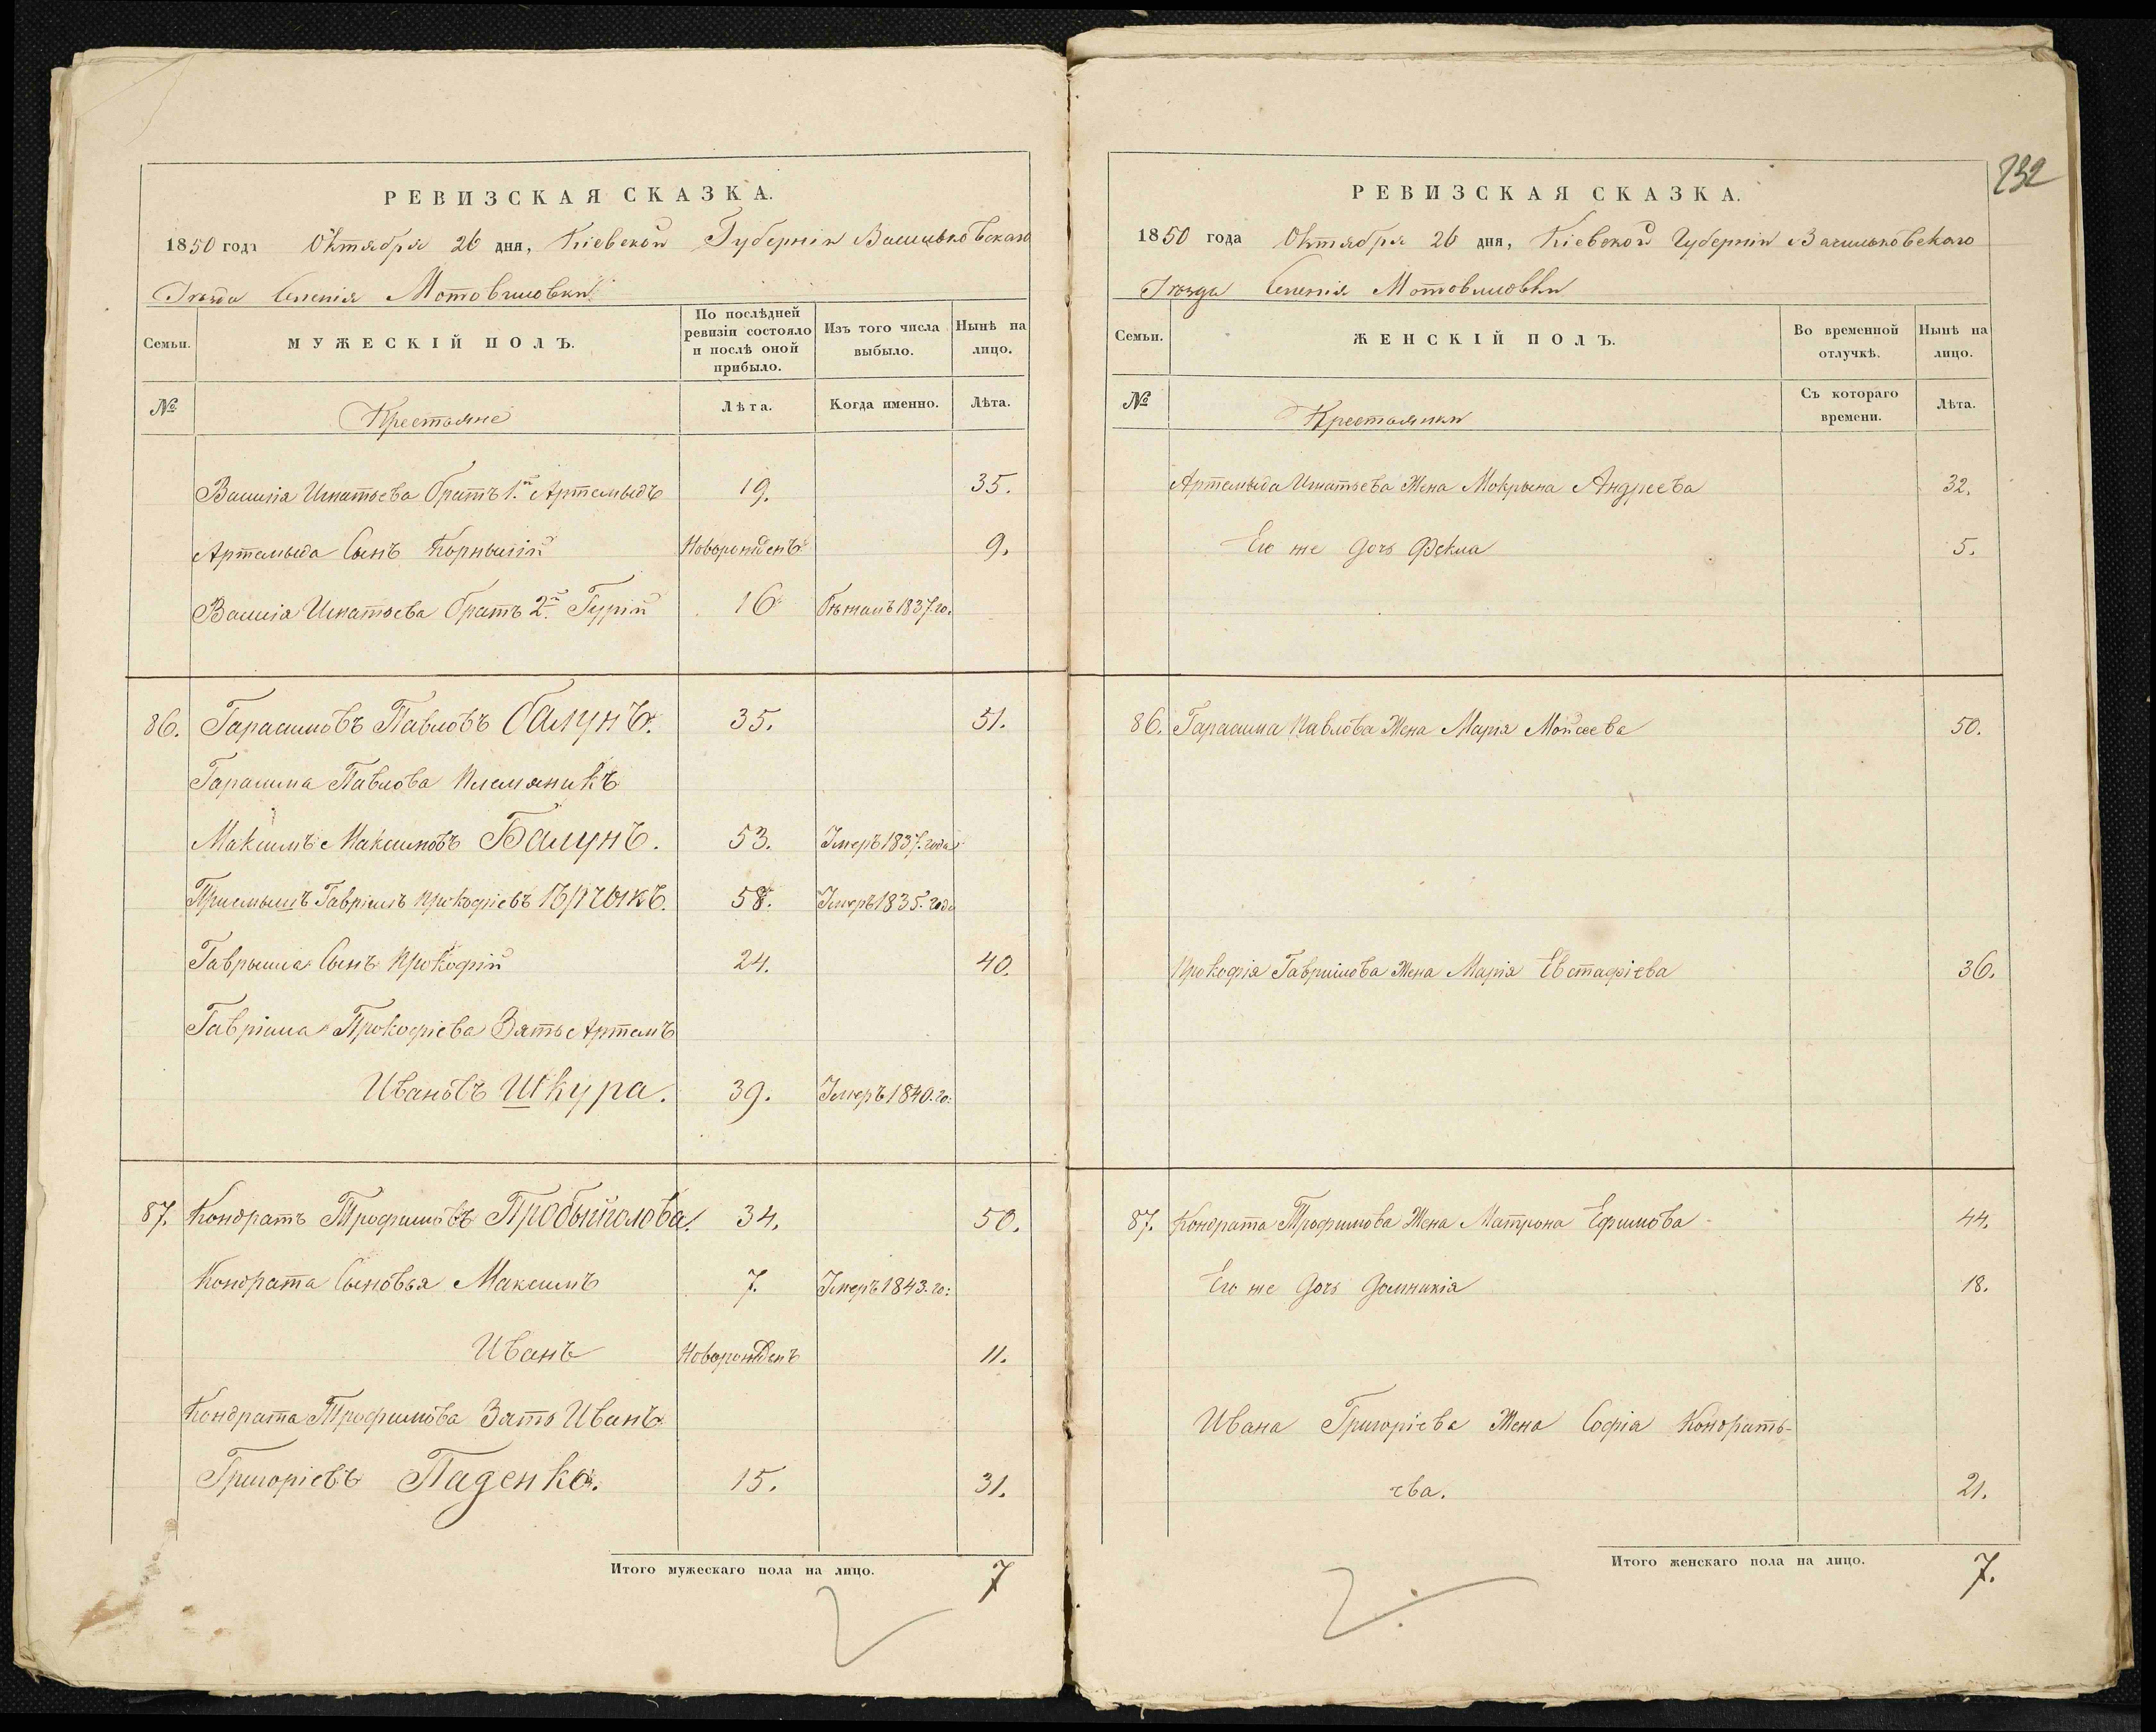 РЕВИЗСКАЯ СКАЗКА.
1850 года Октября 26 дня, Кіевской Губерніи Васильковскаго
Уѣзда Селенія Мотовиловки
Семьи.
МУЖЕСКІЙ ПОЛЪ.
По послѣдней ревизіи состояло и послѣ оной прибыло.
Изъ того числа выбыло.
Нынѣ на лицо.
№
Крестьяне
Лѣта.
Когда именно.
Лѣта.
Василія Игнатьева братъ 1.й Артемыдъ 19. 35.
Артемыда Сынъ Корнылій Новорожденъ 9.
Василія Игнатьева братъ 2.й Гурій 16 бѣжалъ 1837. го.
86. Гарасимовъ Павловъ балунъ. 35. 51.
Гарасима Павлова Племяникъ
Максимъ Максимовъ Балунъ. 53. Умеръ 1837. года
Приемышъ Гавріилъ Прокофіевъ 58. Умеръ 1835. года
Гаврыила Сынъ Прокофій 24. 40.
Гавріила Прокофіева Зять Артемъ
Ивановъ Шкура. 39. Умеръ 1840. го:
87. Кондратъ Трофимовъ Пробыйголова. 34. 50.
Кондрата Сыновья Максимъ 7. Умеръ 1843. го:
Иванъ Новорожденъ 11.
Кондрата Трофимова Зять Иванъ
Григоріевъ Паденко. 15. 31.
Итого мужескаго пола на лицо. 7
232
РЕВИЗСКАЯ СКАЗКА.
1850 года Октября 26 дня, Кіевской Губерніи Васильковскаго
Уѣзда Селенія Мотовиловки
Семьи.
ЖЕНСКІЙ ПОЛЪ.
Во временной отлучкѣ.
Нынѣ на лицо.
№
Крестьянки
Съ котораго времени.
Лѣта.
Артемыда Игнатьева Жена Мокрына Андреева 32.
Его же дочь Фекла 5.
86. Гарасима Павлова Жена Марія Мойсеева 50.
Прокофія Гавриилова Жена Марія Евстафіева 36.
87. Кондрата Трофимова Жена Матрона Ефимова 44.
Его же дочь Домникія 18.
Ивана Григоріева Жена Софія Кондрать-
ева. 21.
Итого женскаго пола на лицо. 7.